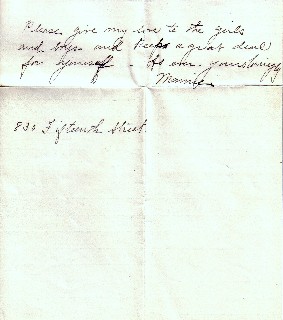 Please give my love to the girls
and boys and keep a great deal
for yourself. As ever yours lovingly
Mamie
830 Fifteenth Street.